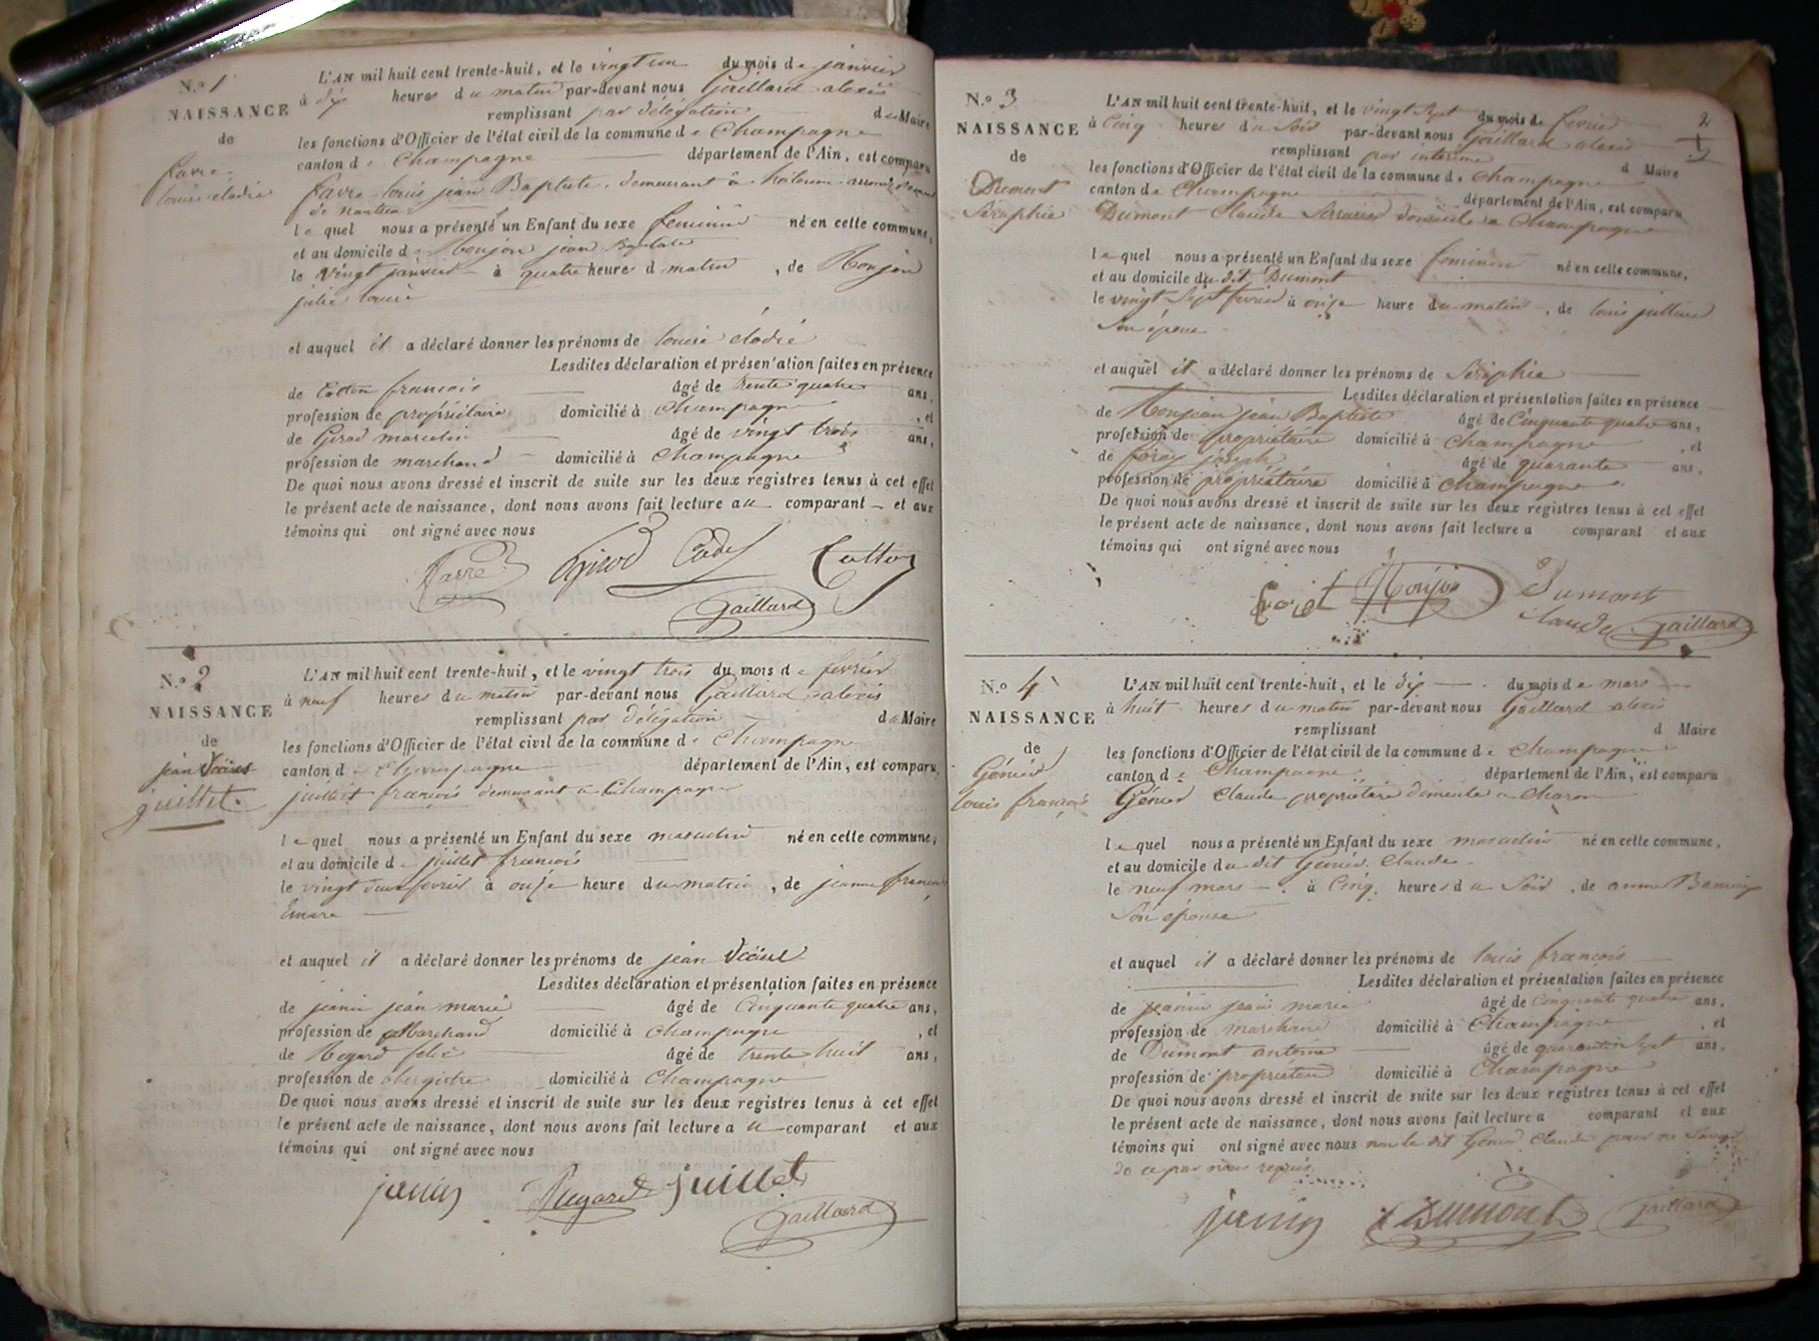 N.o 1
NAISSANCE
de
favre
louise elodie
L'AN mil huit cent trente-huit, et le vingt un du mois de janvier
à dix heures du matin par-devant nous Gaillard alexis
remplissant par délégation de Maire
les fonctions d'Officier de l'état civil de la commune de Champagne
canton de Champagne département de l'Ain, est comparu
favre louis jean Baptiste demeurant à
de nantua
lequel nous a présenté un Enfant du sexe feminin né en cette commune,
et au domicile de jean Baptiste
le vingt janvier à quatre heures d matin, de
julie louise
et auquel il a déclaré donner les prénoms de louise élodie
Lesdites déclaration et présen'ation faites en présence
de Cotton francois âgé de trente quatre ans,
profession de propriétaire domicilié à Champagne, et
de Girod marcelin âgé de vingt trois ans,
profession de marchand domicilié à Champagne
De quoi nous avons dressé et inscrit de suite sur les deux registres tenus à cet effet
le présent acte de naissance, dont nous avons fait lecture au comparant et aux
témoins qui ont signé avec nous
favre Girod Cotton
Gaillard
N.o 2
NAISSANCE
de
jean
juillet
L'AN mil huit cent trente-huit, et le vingt trois du mois de fevrier
à neuf heures du matin par-devant nous Gaillard alexis
remplissant par délégation de Maire
les fonctions d'Officier de l'état civil de la commune de Champagne
canton de Champagne département de l'Ain, est comparu
juillet francois demeurant à Champagne
lequel nous a présenté un Enfant du sexe masculin né en cette commune,
et au domicile de juillet francois
le vingt deux fevrier à onze heure du matin, de jeanne
et auquel il a déclaré donner les prénoms de jean
Lesdites déclaration et présentation faites en présence
de janin jean marie âgé de Cinquante quatre ans,
profession de Marchand domicilié à Champagne, et
de felix âgé de trente huit ans,
profession de domicilié à Champagne
De quoi nous avons dressé et inscrit de suite sur les deux registres tenus à cet effet
le présent acte de naissance, dont nous avons fait lecture au comparant et aux
témoins qui ont signé avec nous
janin juillet
Gaillard
2
N.o 3
NAISSANCE
de
Dumont
Séraphie
L'AN mil huit cent trente-huit, et le vingt sept du mois de fevrier
à Cinq heures du Soir par-devant nous Gaillard alexis
remplissant par interime d Maire
les fonctions d'Officier de l'état civil de la commune de Champagne
canton de Champagne département de l'Ain, est comparu
Dumont Claude Serrurier domicilié à Champagne
lequel nous a présenté un Enfant du sexe feminin né en cette commune,
et au domicile du dit Dumont
le vingt Sept fevrier à onze heure du matin, de
Son épouse
et auquel il a déclaré donner les prénoms de Séraphie
Lesdites déclaration et présentation faites en présence
de jean Baptiste âgé de Cinquante quatre ans,
profession de propriétaire domicilié à Champagne, et
de joseph âgé de quarante ans,
profession de propriétaire domicilié à Champagne
De quoi nous avons dressé et inscrit de suite sur les deux registres tenus à cet effet
le présent acte de naissance, dont nous avons fait lecture a comparant et aux
témoins qui ont signé avec nous
Dumont
Claude Gaillard
N.o 4
NAISSANCE
de
louis françois
L'AN mil huit cent trente-huit, et le dix du mois de mars
à huit heures du matin par-devant nous Gaillard alexis
remplissant d Maire
les fonctions d'Officier de l'état civil de la commune de Champagne
canton de Champagne département de l'Ain, est comparu
Claude propriétaire à
lequel nous a présenté un Enfant du sexe masculin né en cette commune,
et au domicile du dit Claude
le neuf mars à Cinq heures du Soir, de anne
Son épouse
et auquel il a déclaré donner les prénoms de louis francois
Lesdites déclaration et présentation faites en présence
de janin jean marie âgé de Cinquante quatre ans,
profession de marchand domicilié à Champagne, et
de Dumont antoine âgé de quarante sept ans,
profession de propriétaire domicilié à Champagne
De quoi nous avons dressé et inscrit de suite sur les deux registres tenus à cet effet
le présent acte de naissance, dont nous avons fait lecture a comparant et aux
témoins qui ont signé avec nous non le dit Claude pour ne Savoir
de ce par nous requis
janin Dumont Gaillard